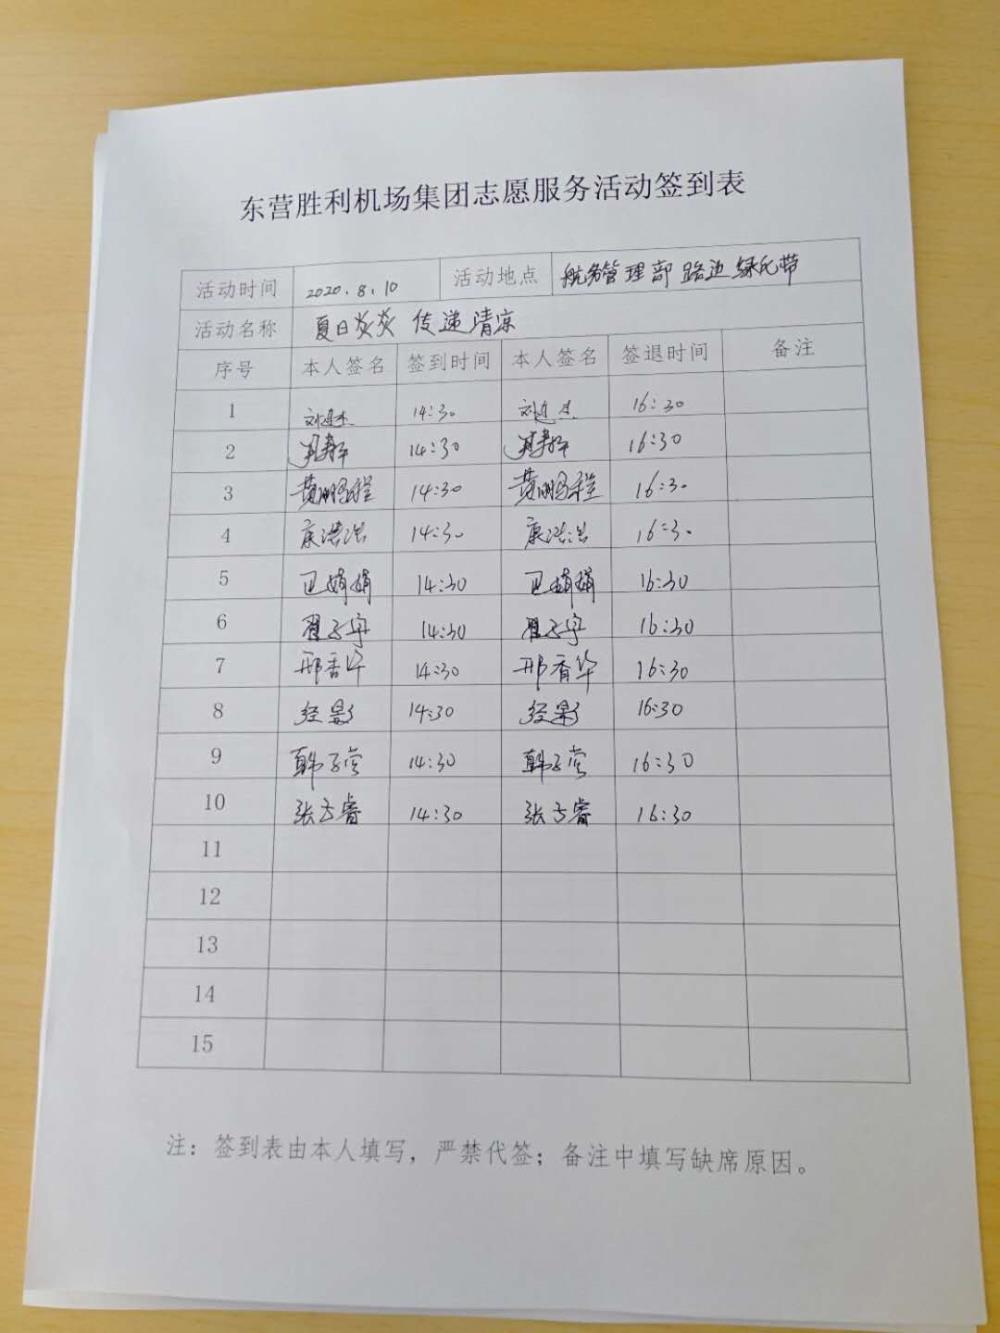 东营胜利机场集团志愿服务活动签到表
活动时间 2020.8.10 活动地点 航务管理部 路边绿化带
活动名称 夏日炎炎 传递清凉
序号 本人签名 签到时间 本人签名 签退时间 备注
1 14:30 16:30
2 14:30 16:30
3 黄鹏程 14:30 黄鹏程 16:30
4 康浩浩 14:30 康浩浩 16:30
5 卫娟娟 14:30 卫娟娟 16:30
6 14:30 16:30
7 邢香华 14:30 邢香华 16:30
8 经影 14:30 经影 16:30
9 韩子莹 14:30 韩子莹 16:30
10 张方睿 14:30 张方睿 16:30
11
12
13
14
15
注：签到表由本人填写，严禁代签；备注中填写缺席原因。